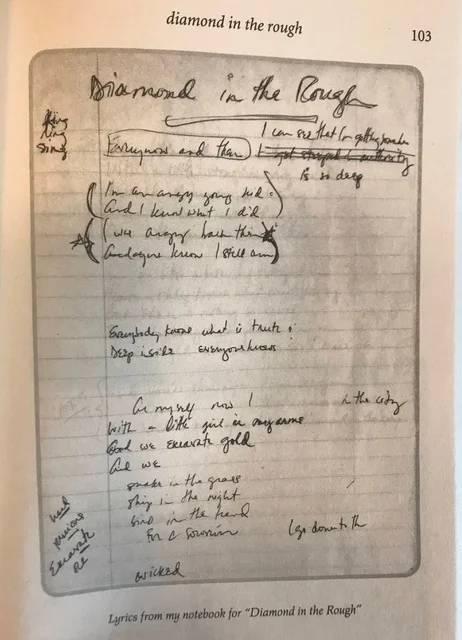 diamond in the rough
103
Diamond in the Rough
thing
ring
sing
Everynow and then
I can see that I'm getting
I get stopped authority
is so deep
I'm an angry young kid
And I know what I did
I was angry back then
And you know I still am
Everybody knows what is truth
Deep inside everyone knows
As myself now I
in the city
With a little girl in my arms
And we excavate gold
And we
snake in the grass
ship in the night
bird in the hand
For a
I go down to th
wicked
Excavate
Lyrics from my notebook for "Diamond in the Rough"